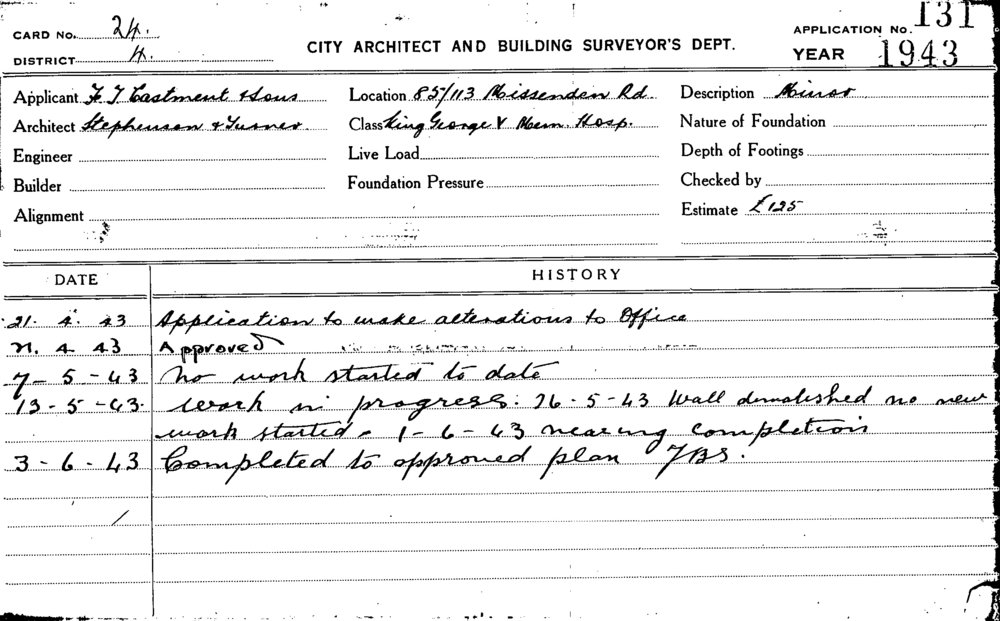 CARD No. 24. CITY ARCHITECT AND BUILDING SURVEYOR'S DEPT. APPLICATION No. 131
DISTRICT 4. YEAR 1943
Applicant F. J Eastment & Sons Location 85/113 Missenden Rd. Description Minor
Architect Stephenson & Turner. Class King George V Mem. Hosp. Nature of Foundation
Engineer Live Load Depth of Footings
Builder Foundation Pressure Checked by
Alignment Estimate £125
DATE HISTORY
21. 4. 43 Application to make alterations to Office
4 43 Approved
7 - 5 - 43 No work started to date
13 - 5 - 43. Work in progress. 26 - 5 - 43 Wall demolished no new
work started - 1 - 6 - 43 nearing completion
3 - 6 - 43 Completed to approved plan JBS.